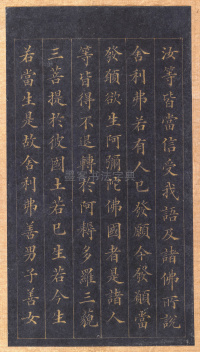 汝等皆當信受我語及諸佛所說
舍利弗若有人已發願今發願當
發願欲生阿彌陀佛國者是諸人
等皆得不退轉於阿耨多羅三藐
三菩提於彼國土若已生若今生
若當生是故舍利弗善男子善女